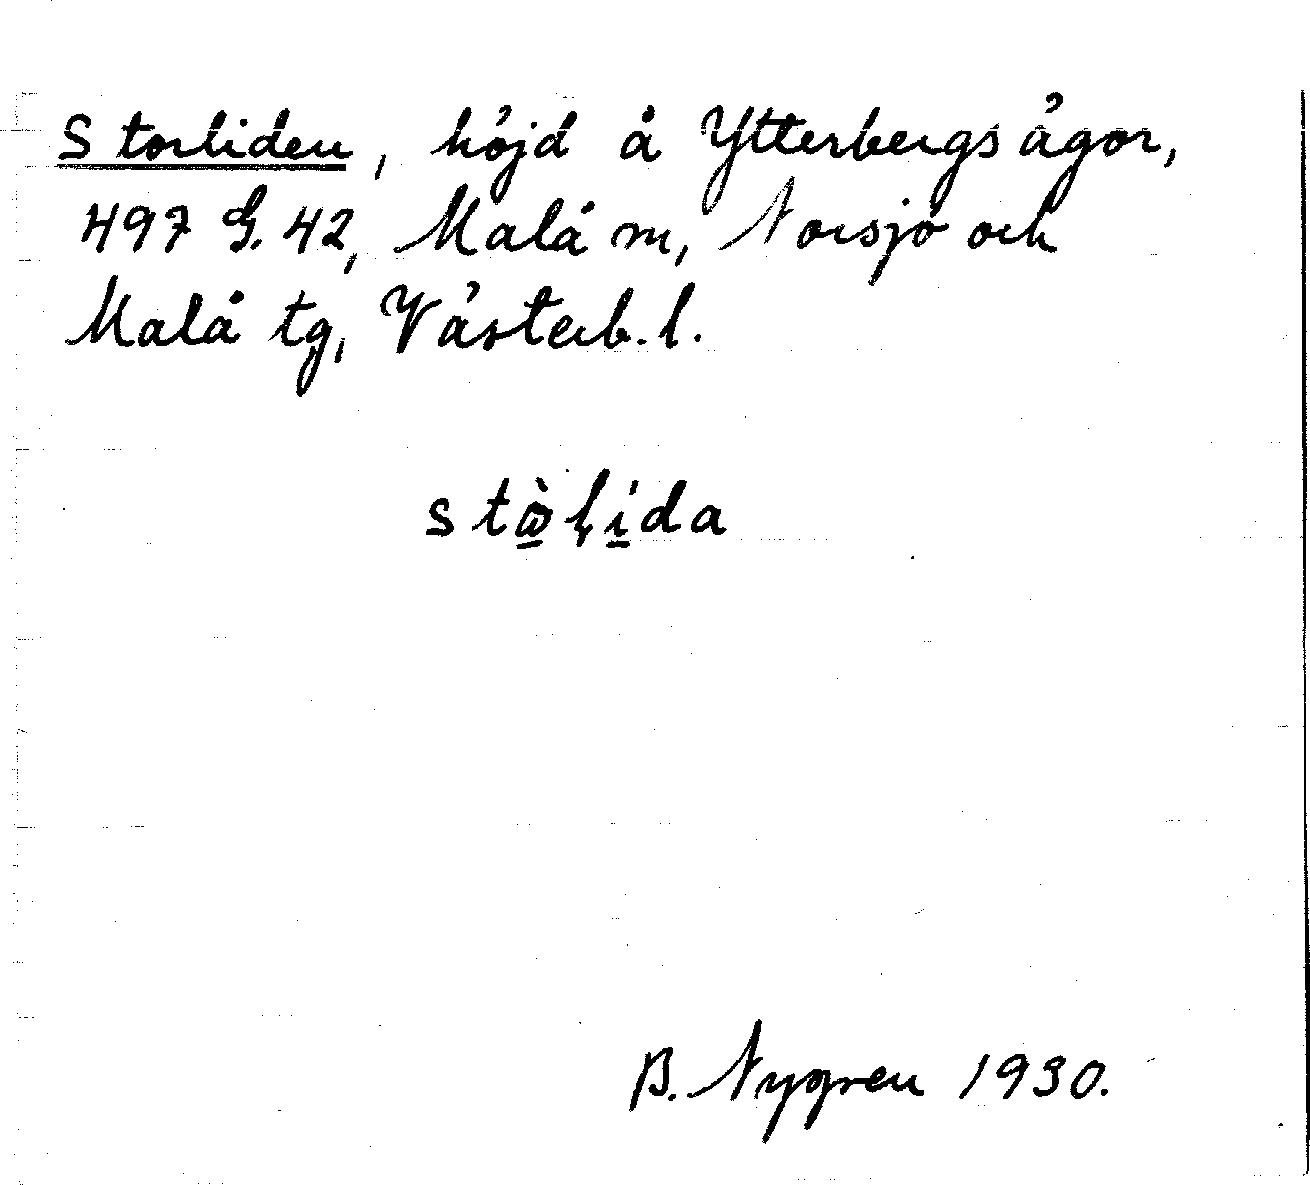 Storliden, höjd å Ytterbergs ägor,
497 G. 42, Malå m, Norsjö och
Malå tg, Västerb. l.
stɷ̠̀l̩i̠da
B. Nygren 1930.